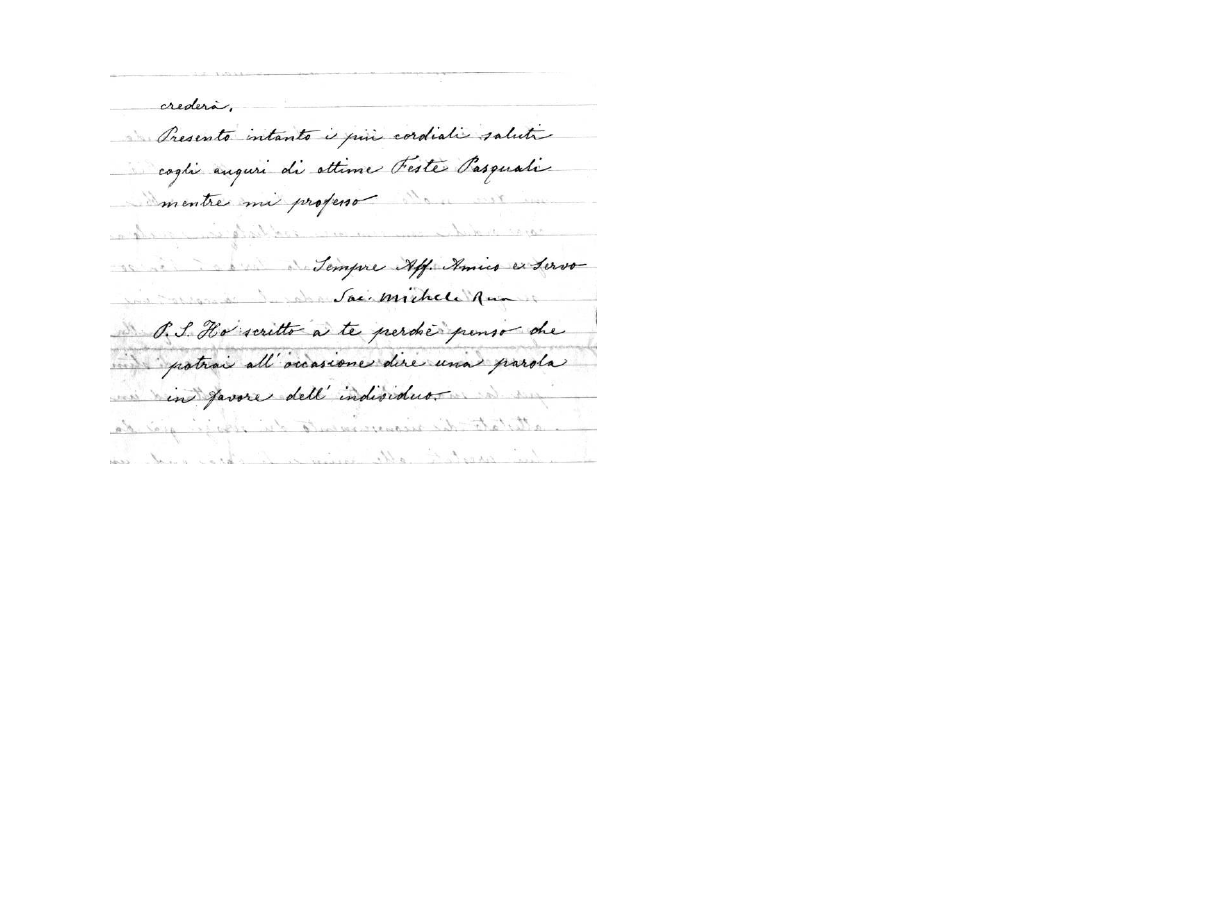 crederà.
Presento intanto i più cordiali saluti
cogli auguri di ottime Feste Pasquali
mentre mi professo
Sempre Aff. Amico e Servo
Sac. Michele Rua
P. S. Ho scritto a te perchè penso che
potrai all' occasione dire una parola
in favore dell' individuo.